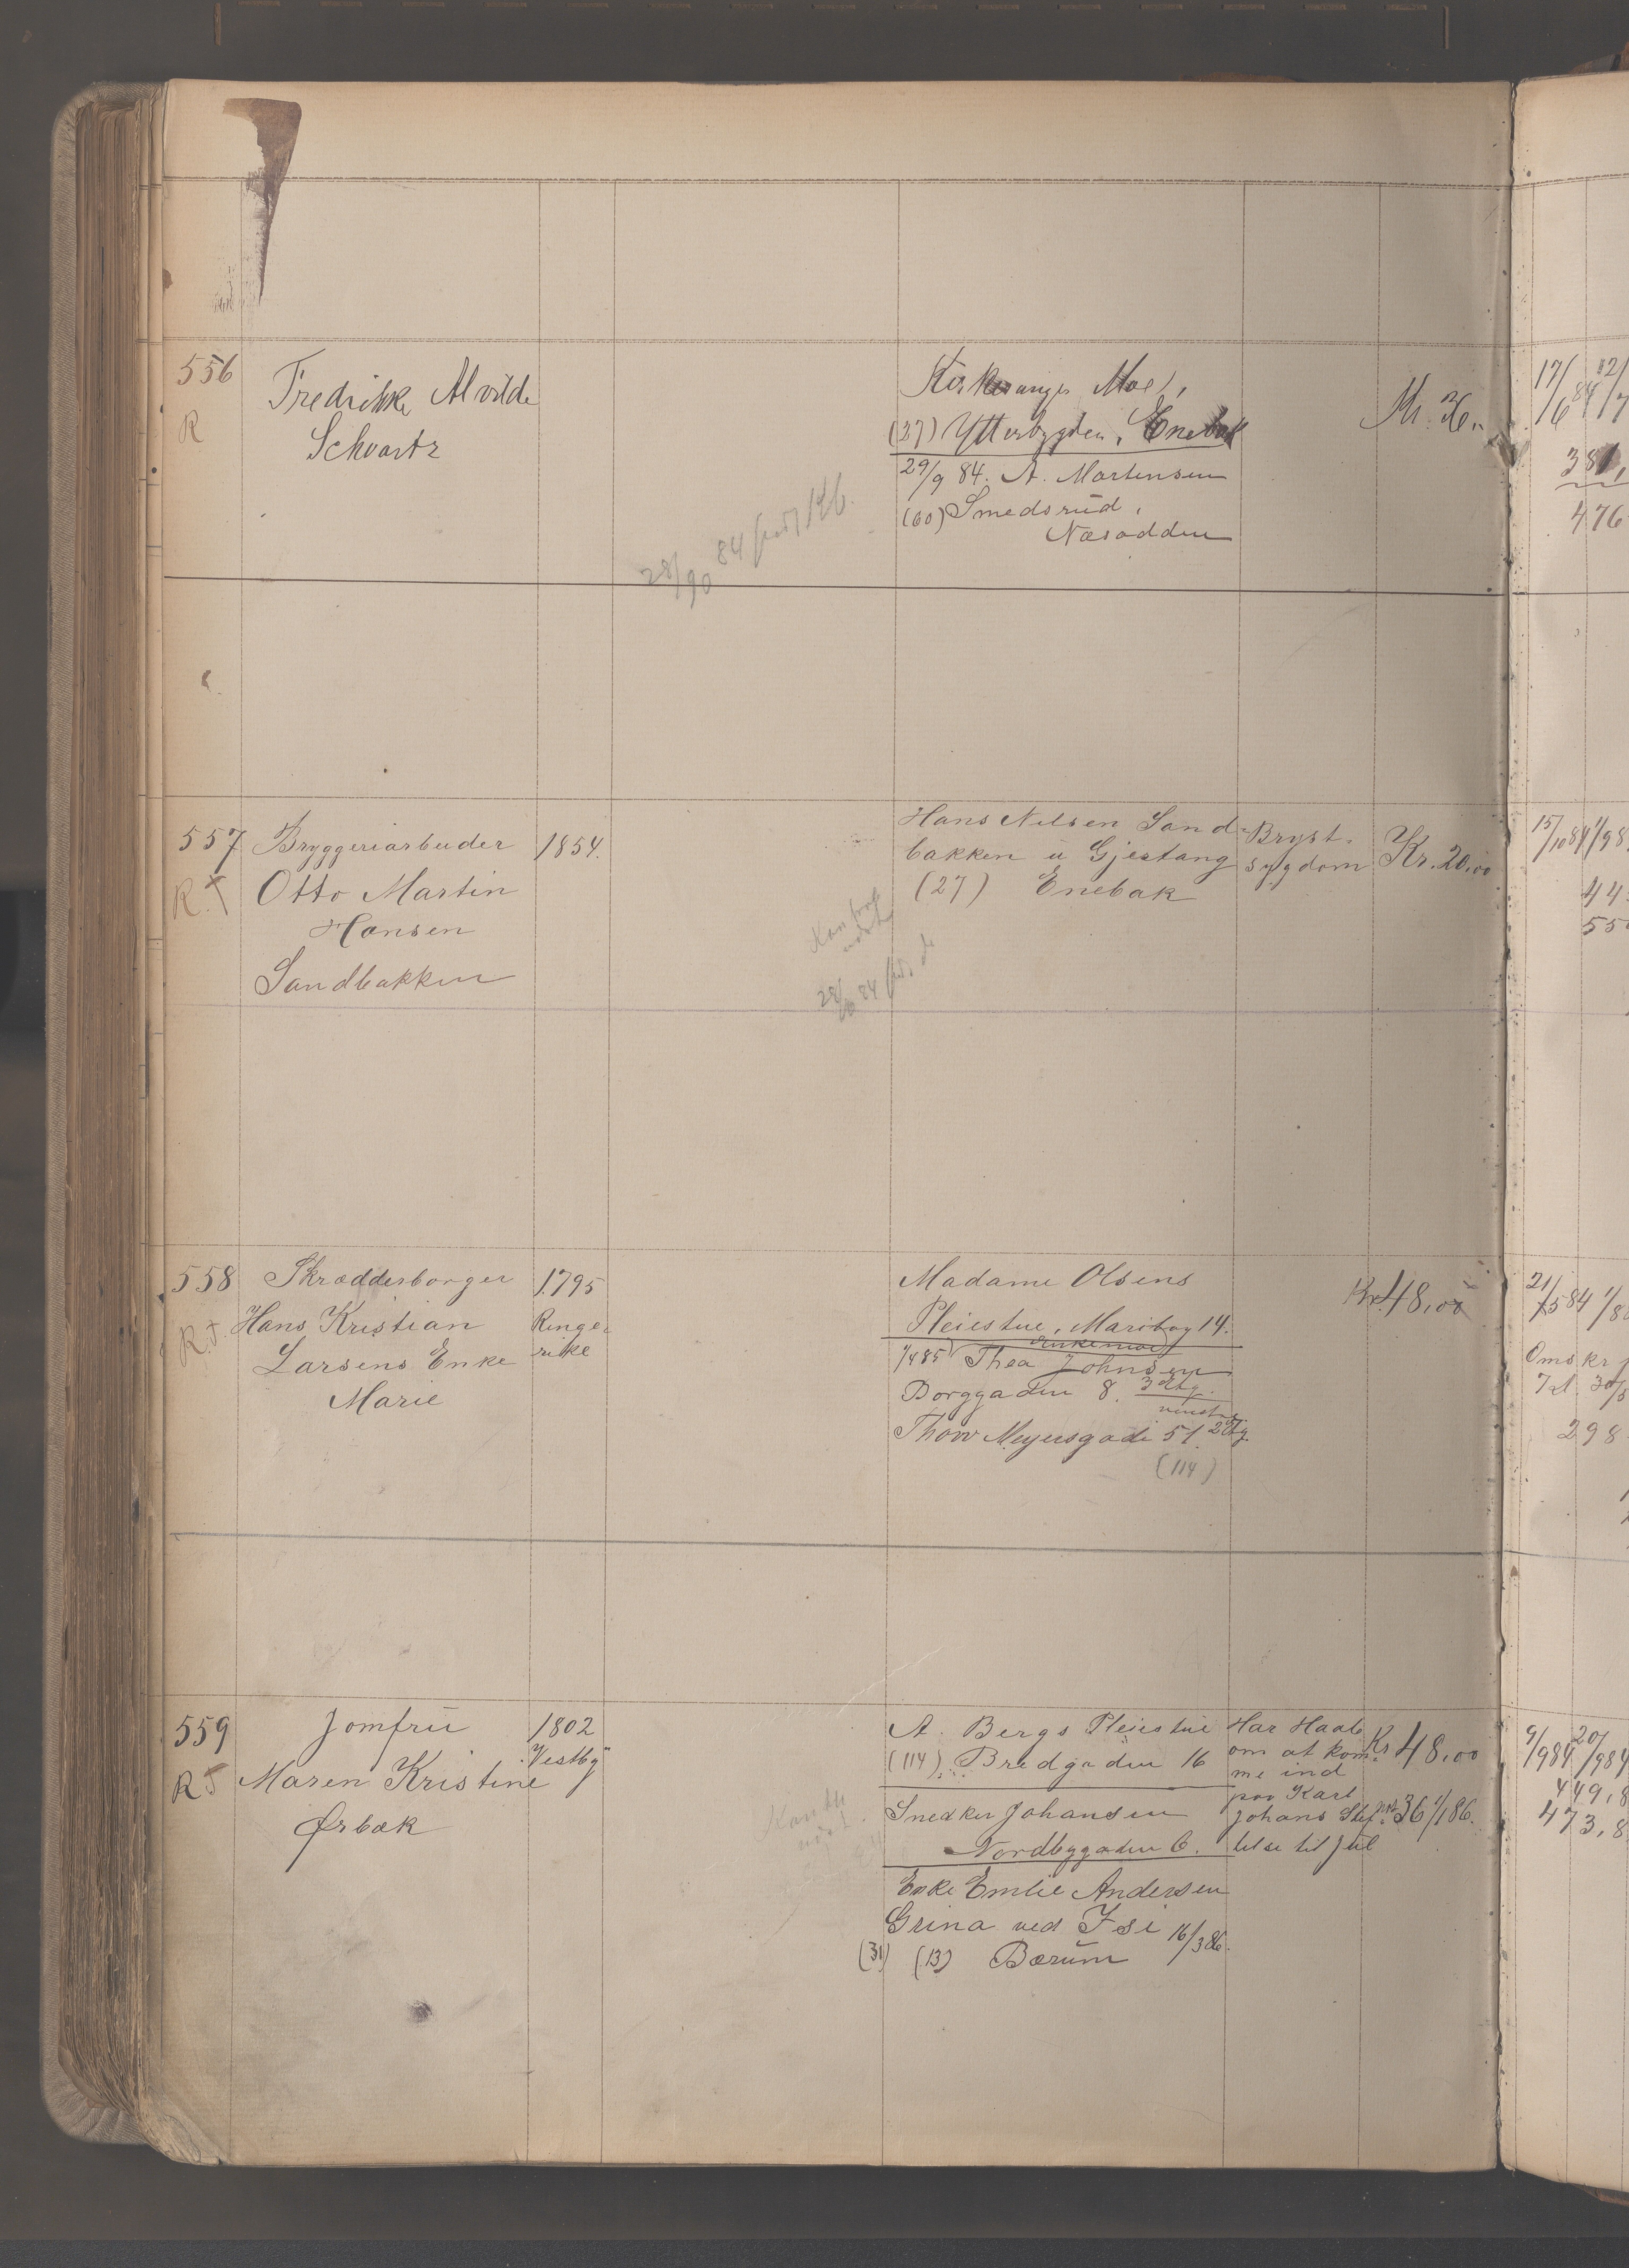 556
R
Fredrikke Alvilde
Schvartz
Moe,
(27) Ytterbygden, Enebak
29/9 84. A. Martensen
(60) Smedsrud,
Næsodden
Kr. 36.
28/90 84
17/6 84
381,
476
557
R. †
Bryggeriarbeider
Otto Martin
Hansen
Sandbakken
1854.
Hans Nilsen Sand-
bakken u Gjestang
(27) Enebak
Bryst-
sygdom
Kr. 20,00
15/10 84 1/98
44
55
558
R. †
Skrædderborger
Hans Kristian
Larsens Enke
Marie
1795
Ringe-
rike
Madame Olsens
Pleiestue, Maribog 14.
1/4 85 Thea Johnsen
Borggaden 8. 3 Etg.
Thorv Meyersgade 51 2 Etg.
(114)
Kr. 48,00
21/5 84
Omskr
298
559
R †
Jomfru
Maren Kristine
Ørbæk
1802
Vestby
A. Bergs Pleiestue
(114) Bredgaden 16
Snedker Johansen
Nordbygaden 6.
Enke Emilie Andersen
Grina ved Isi 16/3 86.
(31) (13) Bærum
Har Haab
om at kom-
me ind
paa Karl
Johans Stif-
telse til Jul
Kr 48,00
36 1/1 86.
9/9 84 20/9 84
449,8
473,8